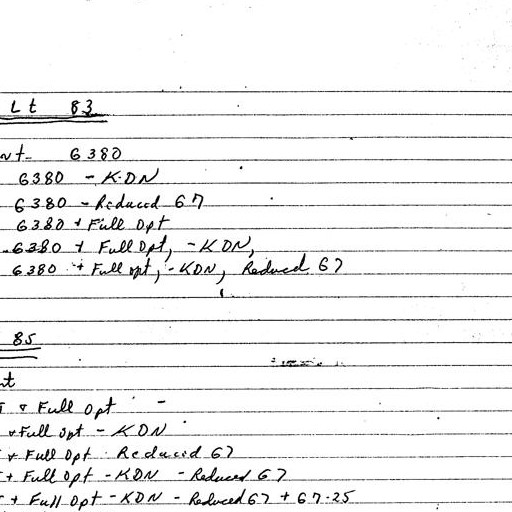 Lt 83
nt- 6380
6380 - KDN
6380 - Reduced 67
6380 + Full Opt
6380 + Full Opt, - KDN,
6380 + Full opt, - KDN, Reduced 67
85
nt
+ Full Opt -
+ Full opt - KDN
+ Full Opt Reduced 67
+ Full Opt - KDN - Reduced 67
+ Full Opt - KDN - Reduced 67 + 67-25